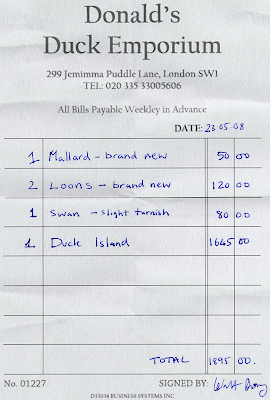 Donald's
Duck Emporium
299 Jemimma Puddle Lane, London SW1
TEL: 020 335 33005606
All Bills Payable Weekly in Advance
DATE: 23.05.08
1 Mallard - brand new 50 00
2 Loons - brand new 120 00
1 Swan - slight tarnish 80 00
1 Duck Island 1645 00
TOTAL 1895 00.
No. 01227 SIGNED BY: Walt Disney
D33034 BUSINESS SYSTEMS INC